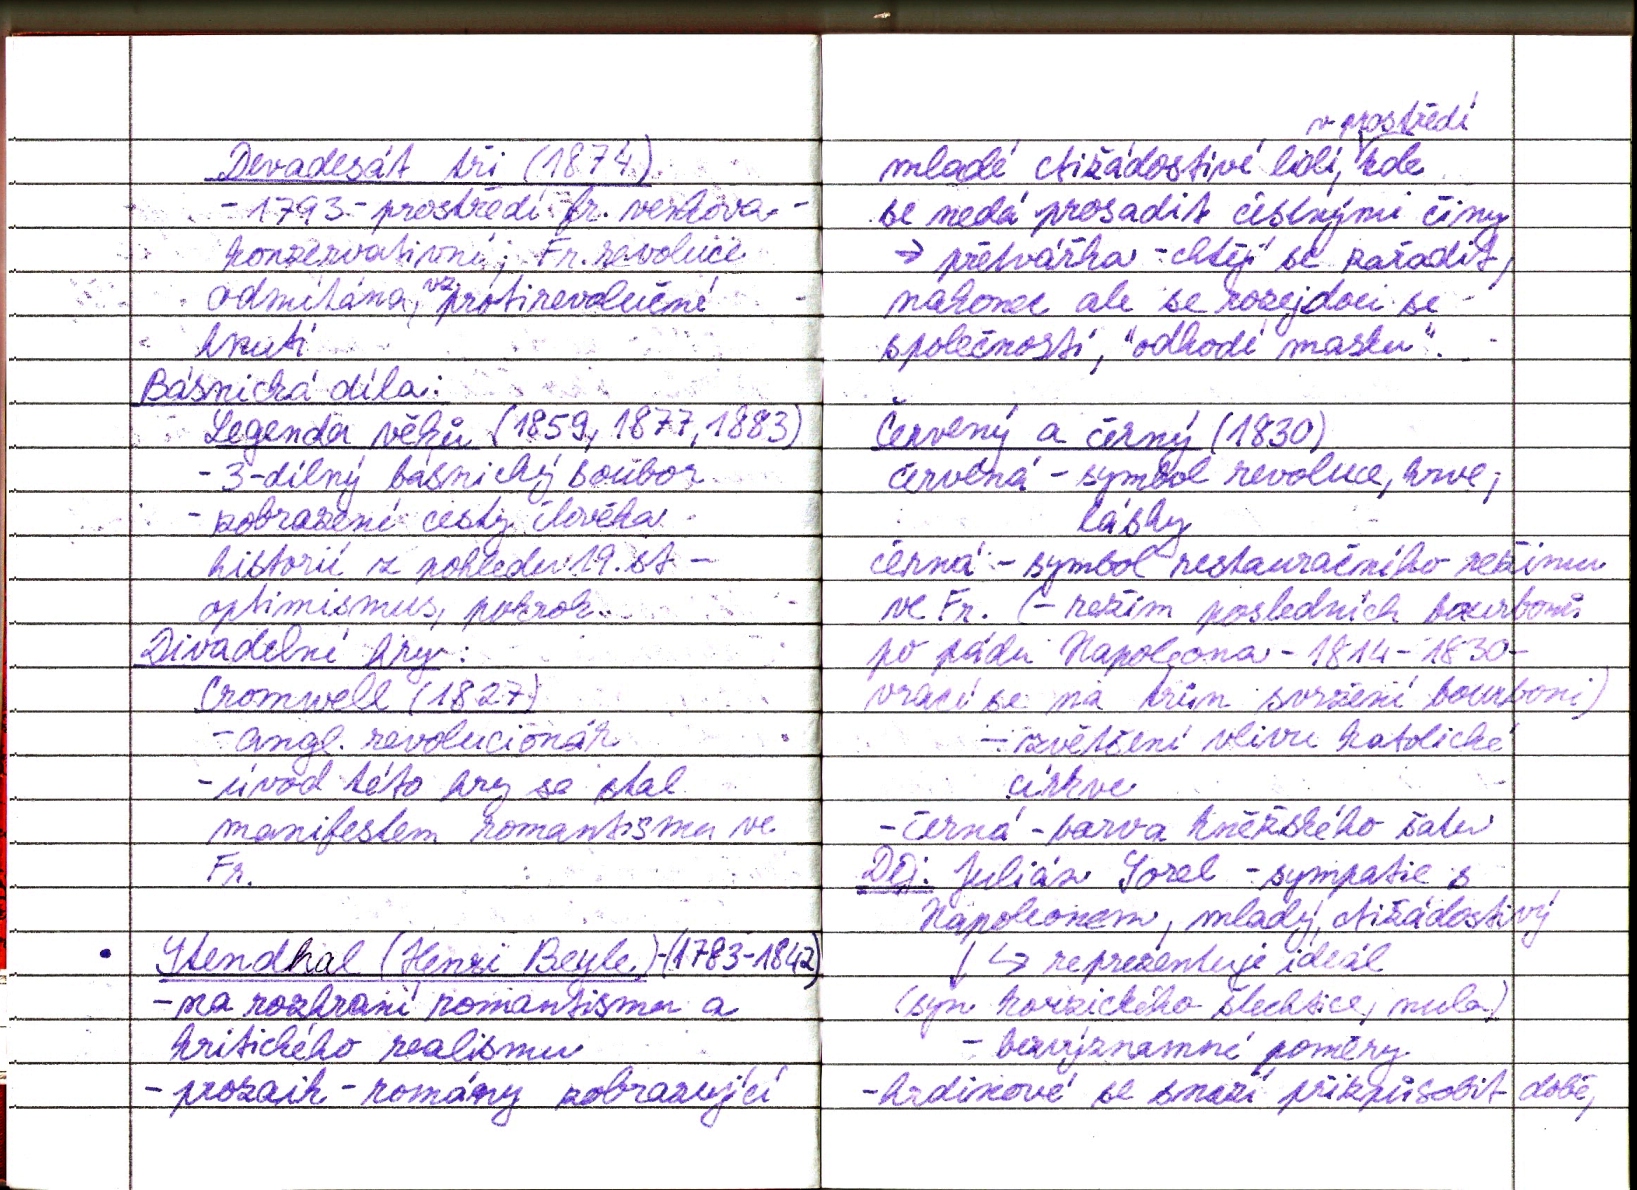 Devadesát tři (1874)
- 1793 - prostředí fr. venkova -
konzervativní; Fr. revoluce
odmítána, vz. protirevoluční
hnutí
Básnická díla:
Legenda věků (1859, 1877, 1883)
- 3-dílný básnický soubor
- zobrazení cesty člověka
historií z pohledu 19. st -
optimismus, pokrok.
Divadelní hry:
Cromwell (1827)
- angl. revolucionář
- úvod této hry se stal
manifestem romantismu ve
Fr.
• Stendhal (Henri Beyle) - (1783-1842)
- na rozhraní romantismu a
kritického realismu
- prozaik - romány zobrazující
v prostředí
mladé ctižádostivé lidi, kde
se nedá prosadit čestnými činy
→ přetvářka - chtějí se zařadit,
nakonec ale se rozejdou se
společností, "odhodí masku".
Červený a černý (1830)
červená - symbol revoluce, krve,
lásky
černá - symbol restauračního režimu
ve Fr. (- režim posledních bourbonů
po pádu Napoleona - 1814 - 1830 -
vrací se na trůn svržení bourboni)
- zvětšení vlivu katolické
církve
- černá - barva kněžského šatu
Děj: Julián Sorel - sympatie s
Napoleonem, mladý, ctižádostivý
↓ ↪ reprezentuje ideál
(syn korzického šlechtice, nula)
- bezvýznamné poměry
- hrdinové se snaží přizpůsobit době,